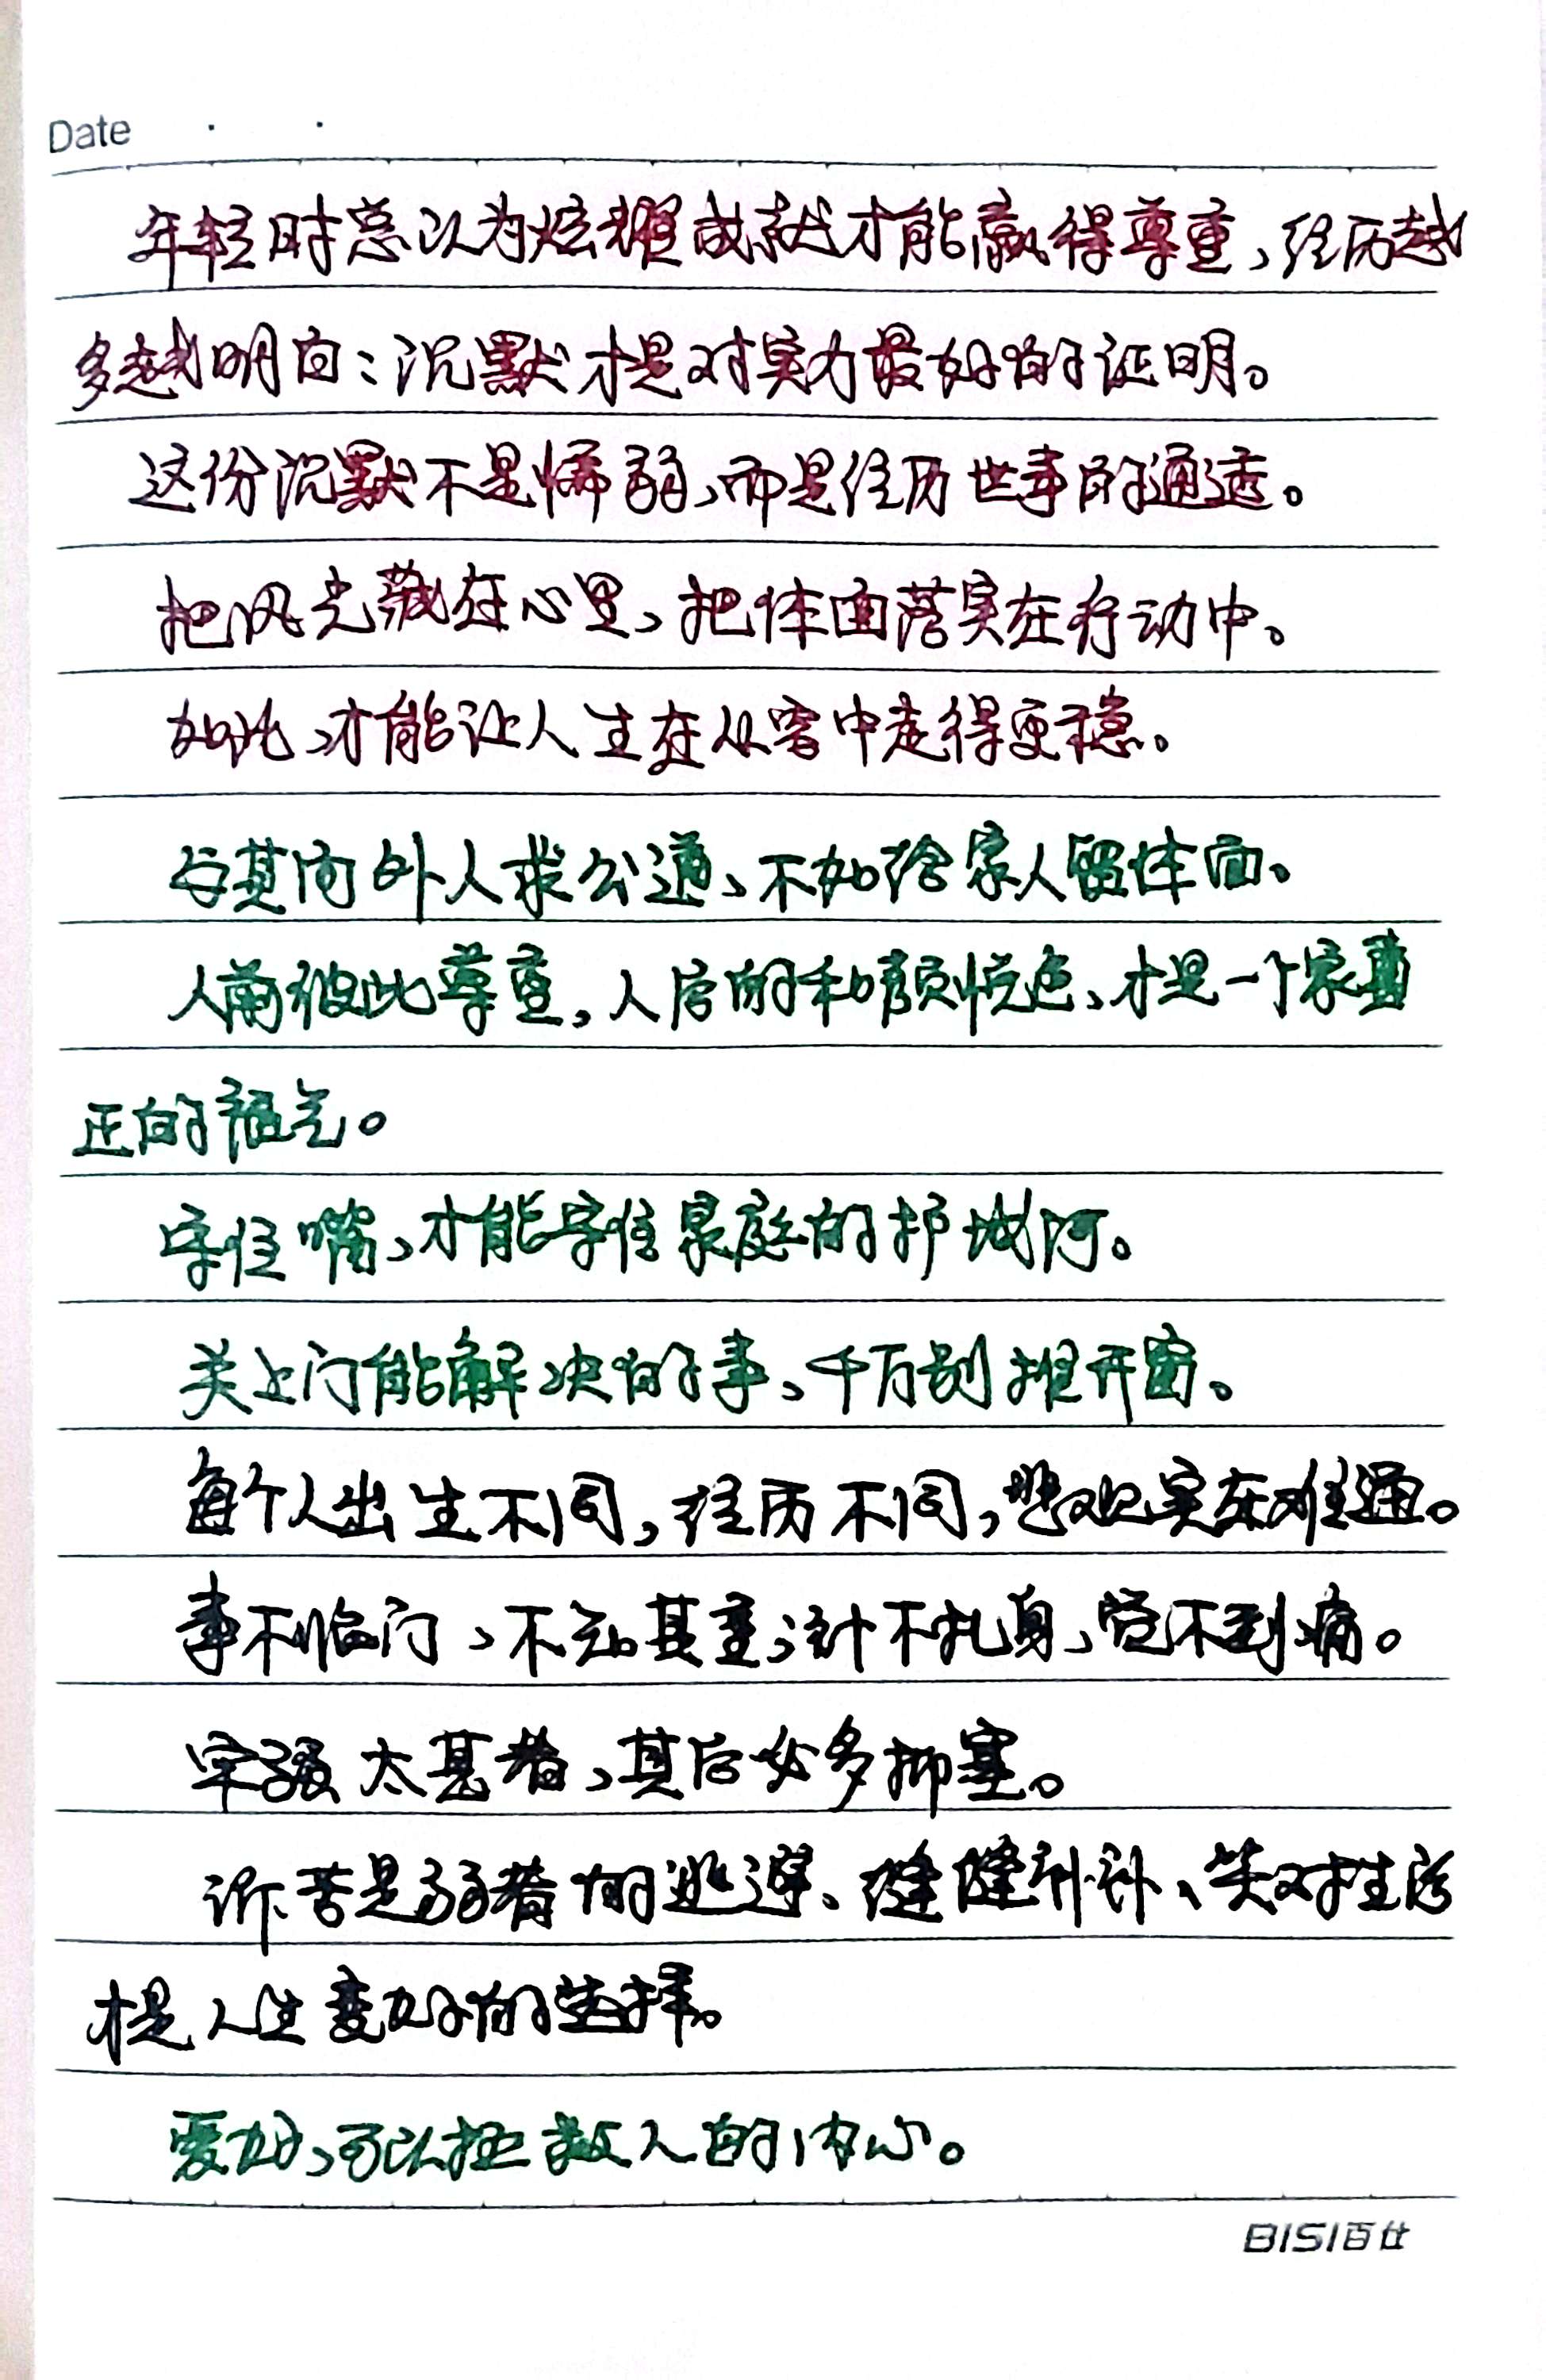 Date
年轻时总以为炫耀成就才能赢得尊重，经历越
多越明白：沉默才是对实力最好的证明。
这份沉默不是懦弱，而是经历世事的通透。
把风光藏在心里，把体面落实在行动中。
如此，才能让人生在从容中走得更稳。
与其向外人求公道，不如给家人留体面。
人前彼此尊重，人后的和颜悦色，才是一个家真
正的福气。
守住嘴，才能守住家庭的护城河。
关上门能解决的事，千万别推开窗。
每个人出生不同，经历不同，悲观实在难通。
事不临门，不知其重；针不扎身，觉不到痛。
牢骚太甚者，其后必多抑塞。
诉苦是弱者的逃避、缝缝补补、笑对生活
才是人生变好的选择。
爱好，可以拯救人的内心。
BISI百仕